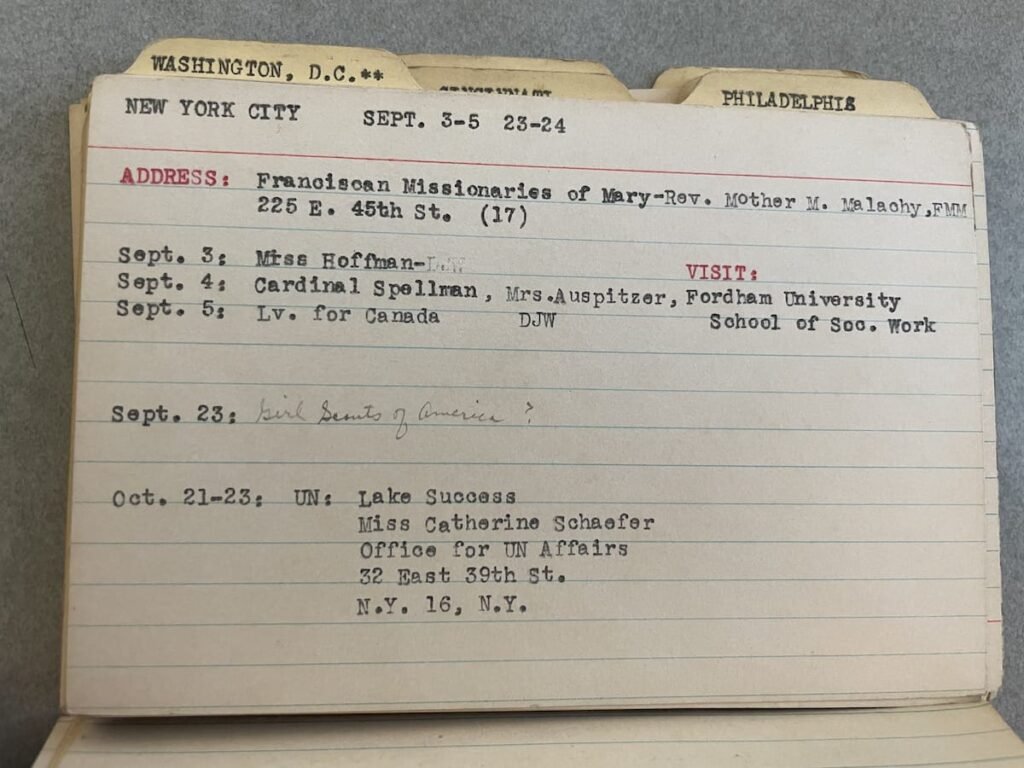 WASHINGTON, D.C.**
CINCINNATI
PHILADELPHIS
NEW YORK CITY SEPT. 3-5 23-24
ADDRESS: Franciscan Missionaries of Mary-Rev. Mother M. Malachy,FMM
225 E. 45th St. (17)
Sept. 3: Miss Hoffman- VISIT:
Sept. 4: Cardinal Spellman, Mrs.Auspitzer, Fordham University
Sept. 5: Lv. for Canada DJW School of Soc. Work
Sept. 23: Girl Scouts of America ?
Oct. 21-23: UN: Lake Success
Miss Catherine Schaefer
Office for UN Affairs
32 East 39th St.
N.Y. 16, N.Y.